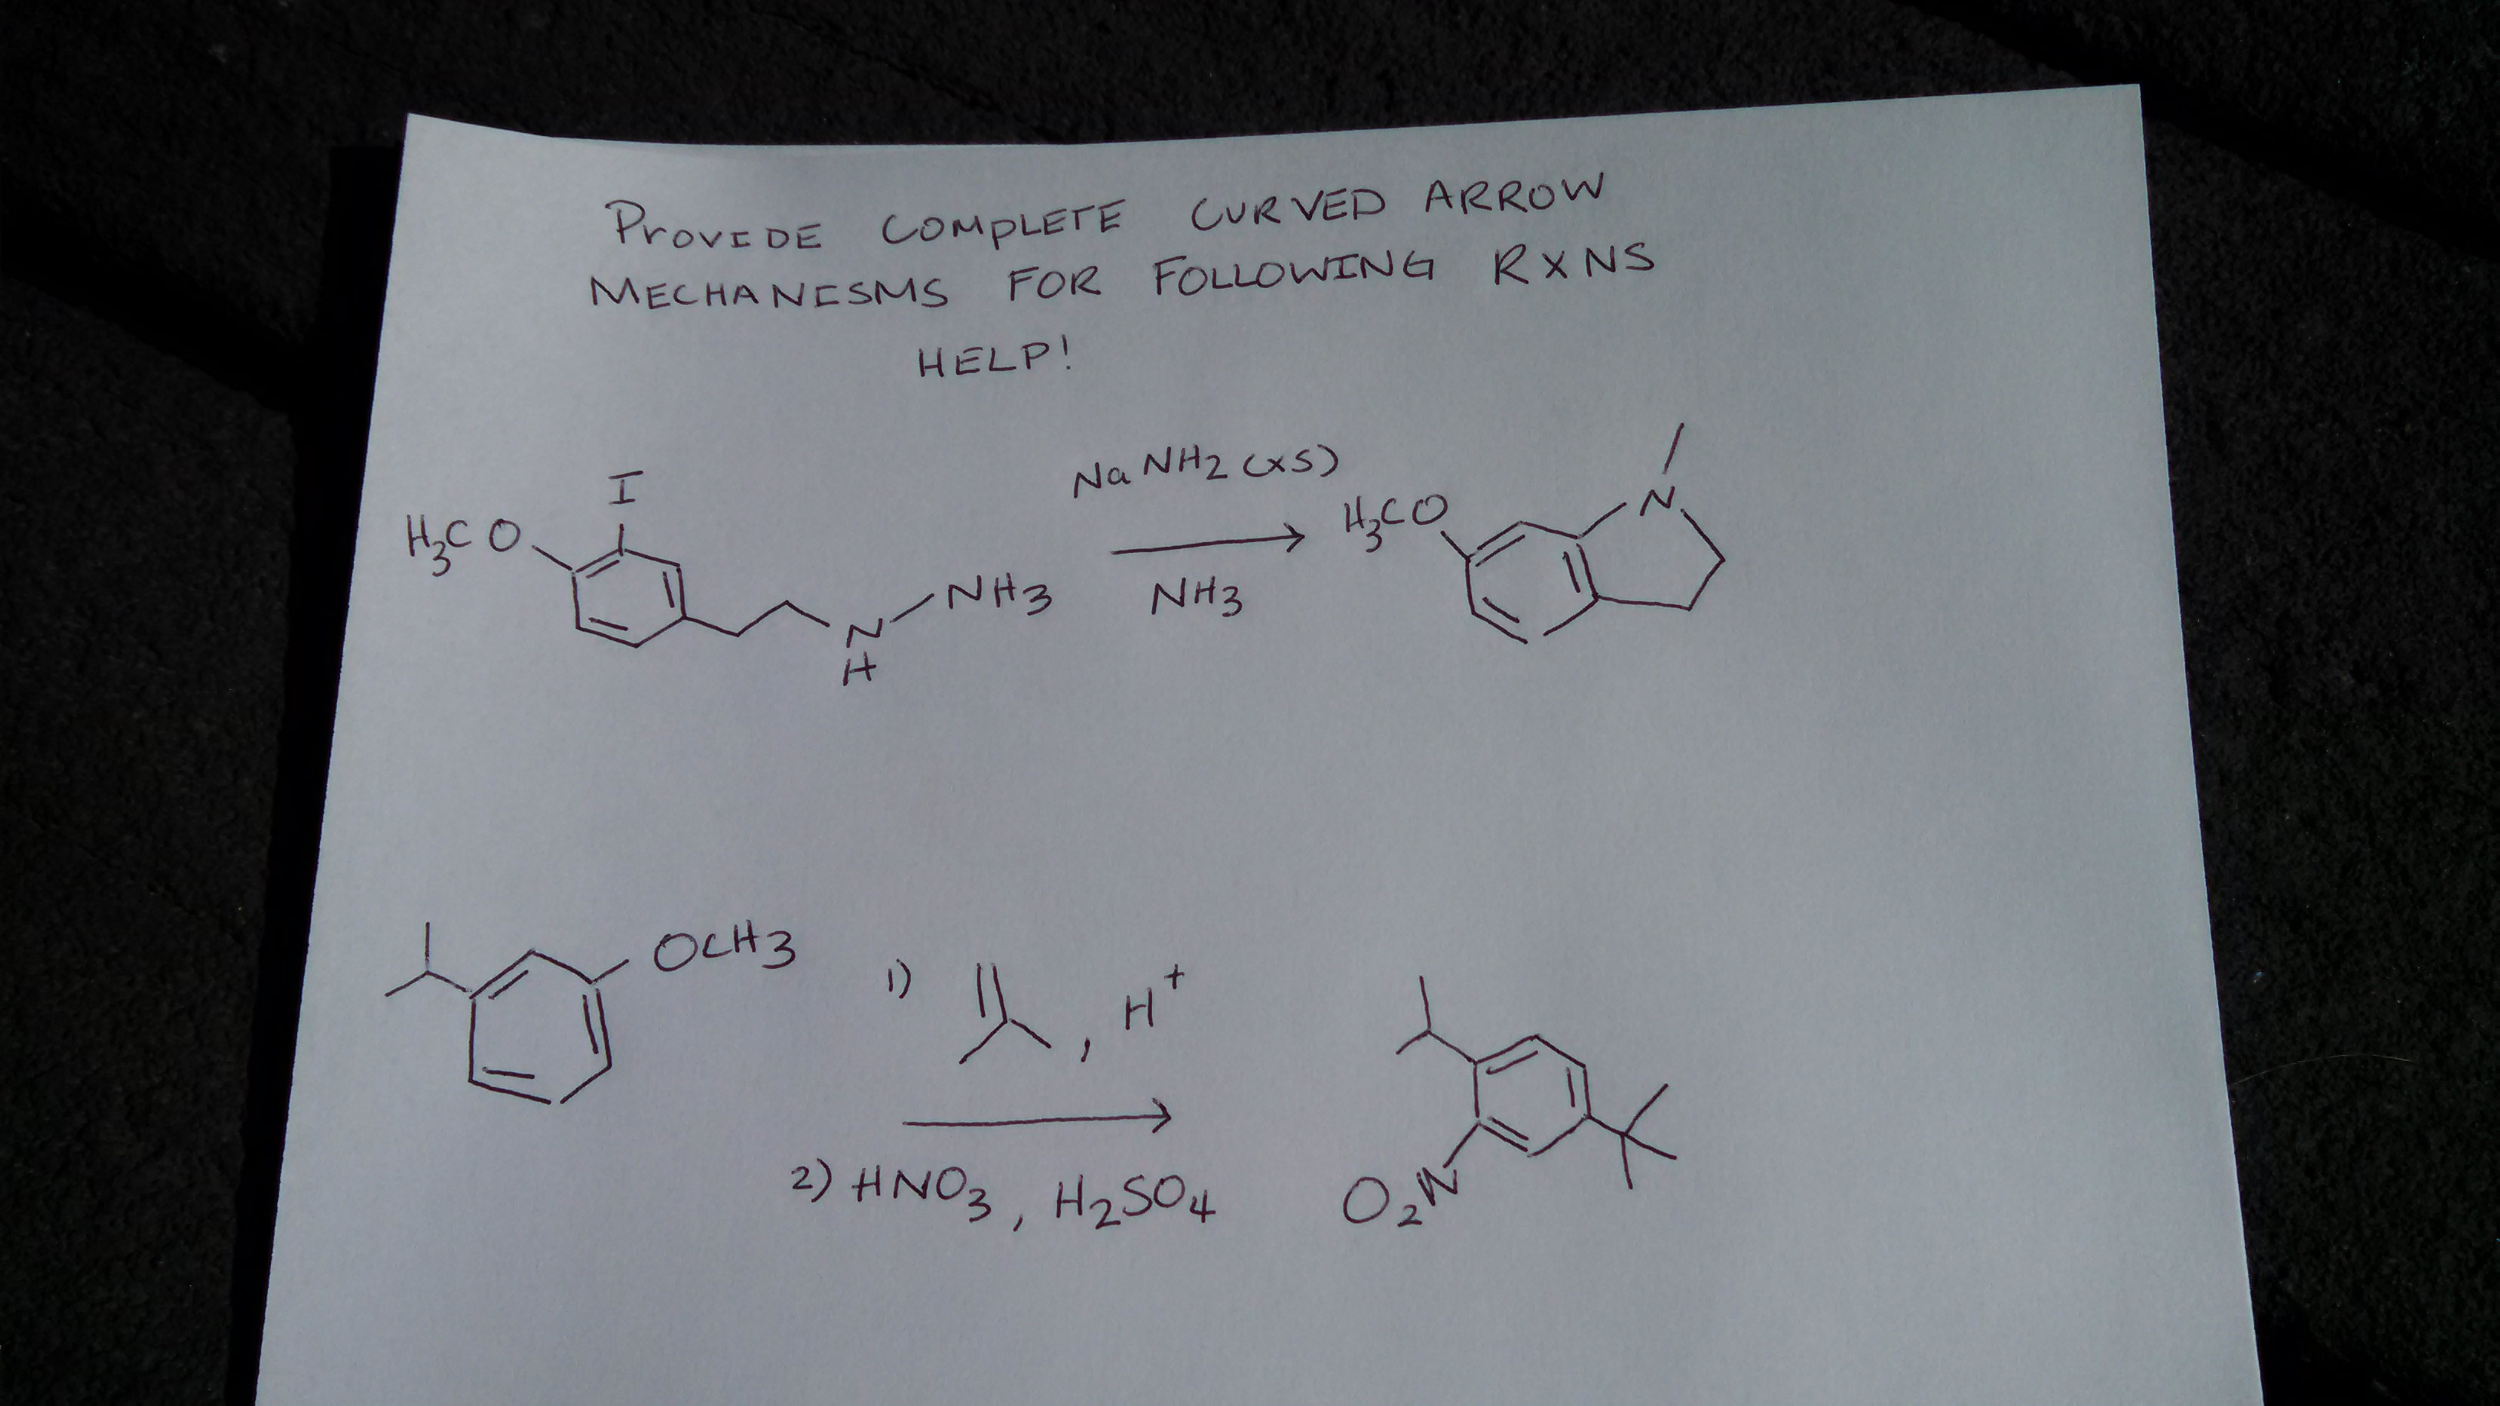 PROVIDE COMPLETE CURVED ARROW
MECHANISMS FOR FOLLOWING RXNS
HELP!
H3CO
I
N
H
NH3
NaNH2 (xs)
NH3
H3CO
N
OCH3
1) , H+
2) HNO3, H2SO4
O2N